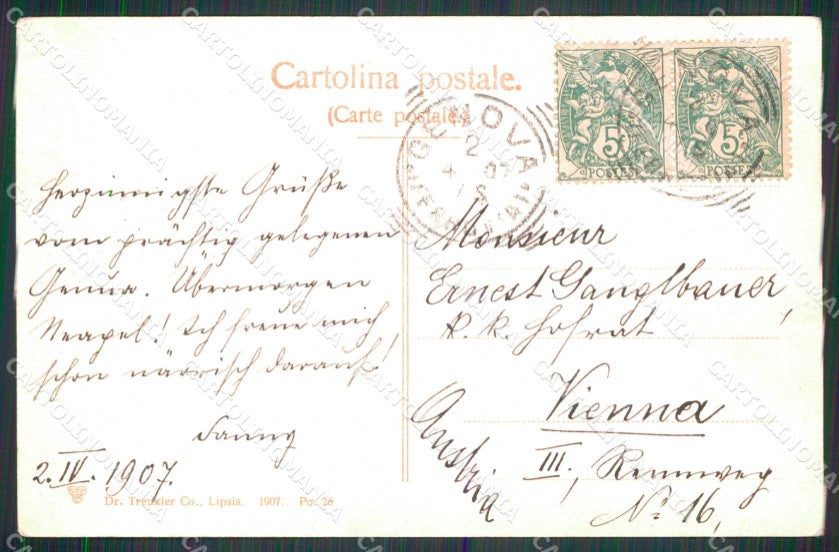 Cartolina postale.
(Carte postale.)
GENOVA
2
4 07
(FERROVIA)
5
POSTES
5
POSTES
herzinnigste Grüße
vom prächtig gelegenen
Genua. Übermorgen
Neapel! Ich freue mich
schon närrisch darauf!
Fanny
2. IV. 1907.
Monsieur
Ernest Ganglbauer,
k. k. Hofrat
Vienna
III., Rennweg
No 16,
Austria
Dr. Trenkler Co., Lipsia. 1907. Po. 28
CARTOLINOMANIA